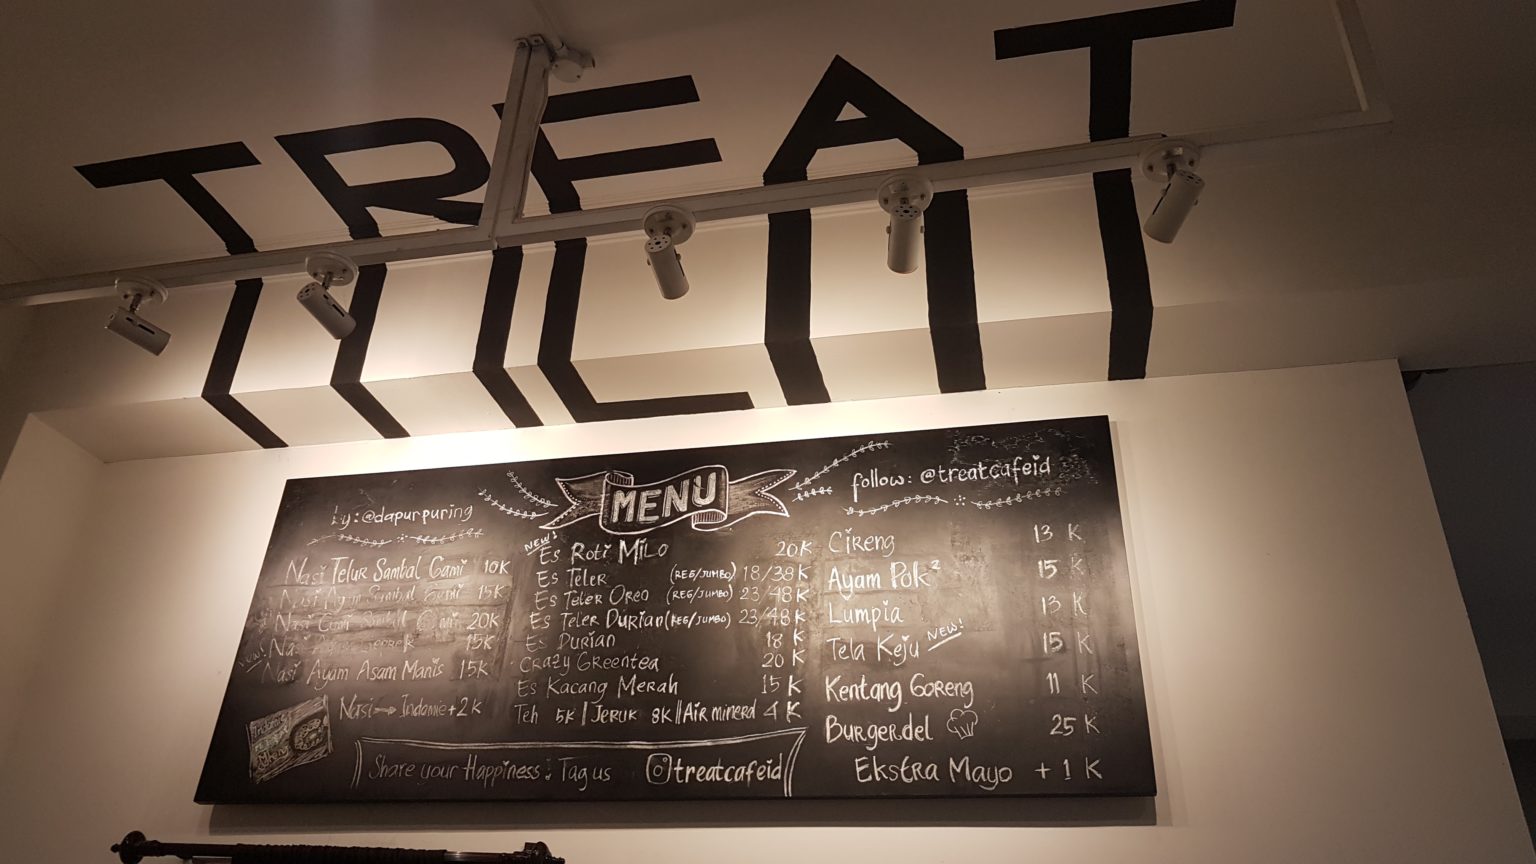 TREAT
by:@dapurpuring
Nasi Telur Sambal Cami 10K
Nasi Ayam Sambal 15K
Nasi Cumi Sambal 20K
New! Nasi 15K
Nasi Ayam Asam Manis 15K
Nasi → Indomie +2K
MENU
NEW! Es Roti Milo 20K
Es Teler (REG/JUMBO) 18/38K
Es Teler Oreo (REG/JUMBO) 23/48K
Es Teler Durian (REG/JUMBO) 23/48K
Es Durian 18 K
Crazy Greentea 20 K
Es Kacang Merah 15 K
Teh 5K | Jeruk 8K || Air mineral 4 K
Share your Happiness! Tag us treatcafeid
follow: @treatcafeid
Cireng 13 K
Ayam Pok² 15 K
Lumpia 13 K
Tela Keju NEW! 15 K
Kentang Goreng 11 K
Burgerdel 25 K
Ekstra Mayo + 1 K